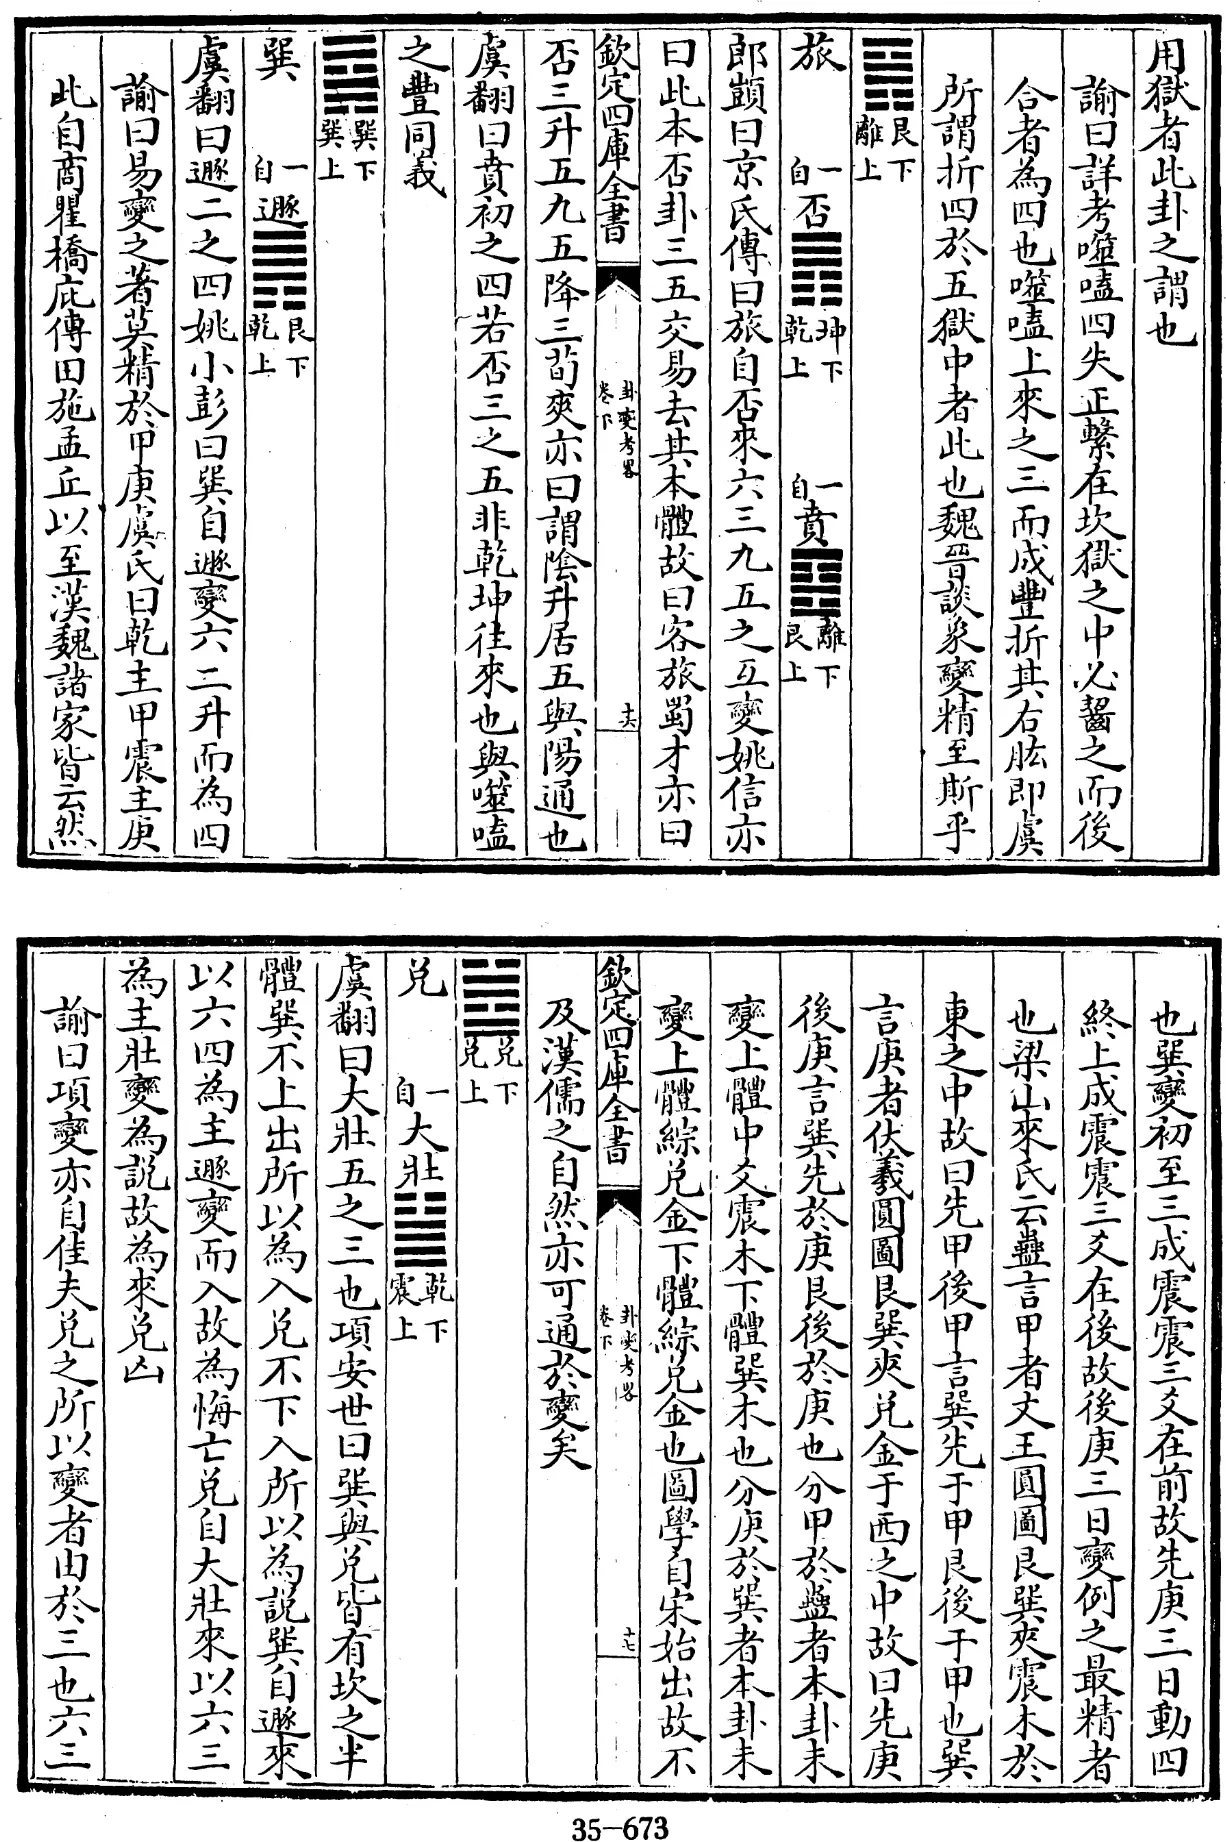 用獄者此卦之謂也
諭曰詳考噬嗑四失正繫在坎獄之中必齧之而後
合者為四也噬嗑上來之三而成豐折其右肱即虞
所謂折四於五獄中者此也魏晉談象變精至斯乎
艮下離上
旅 一自否 坤下乾上 一自賁 離下艮上
郎顗曰京氏傳曰旅自否來六三九五之互變姚信亦
曰此本否卦三五交易去其本體故曰客旅蜀才亦曰
欽定四庫全書 卦變考畧卷下 十六
否三升五九五降三荀爽亦曰謂陰升居五與陽通也
虞翻曰賁初之四若否三之五非乾坤往來也與噬嗑
之豐同義
巽下巽上
巽 一自遯 艮下乾上
虞翻曰遯二之四姚小彭曰巽自遯變六二升而為四
諭曰易變之著莫精於甲庚虞氏曰乾主甲震主庚
此自商瞿橋庇傳田施孟丘以至漢魏諸家皆云然
也巽變初至三成震震三爻在前故先庚三日動四
終上成震震三爻在後故後庚三日變例之最精者
也梁山來氏云蠱言甲者文王圓圖艮巽夾震木於
東之中故曰先甲後甲言巽先于甲艮後于甲也巽
言庚者伏羲圓圖艮巽夾兌金于西之中故曰先庚
後庚言巽先於庚艮後於庚也分甲於蠱者本卦未
變上體中爻震木下體巽木也分庚於巽者本卦未
變上體綜兌金下體綜兌金也圖學自宋始出故不
欽定四庫全書 卦變考畧卷下 十七
及漢儒之自然亦可通於變矣
兌下兌上
兌 一自大壯 乾下震上
虞翻曰大壯五之三也項安世曰巽與兌皆有坎之半
體巽不上出所以為入兌不下入所以為說巽自遯來
以六四為主遯變而入故為悔亡兌自大壯來以六三
為主壯變為說故為來兌凶
諭曰項變亦自佳夫兌之所以變者由於三也六三
35-673